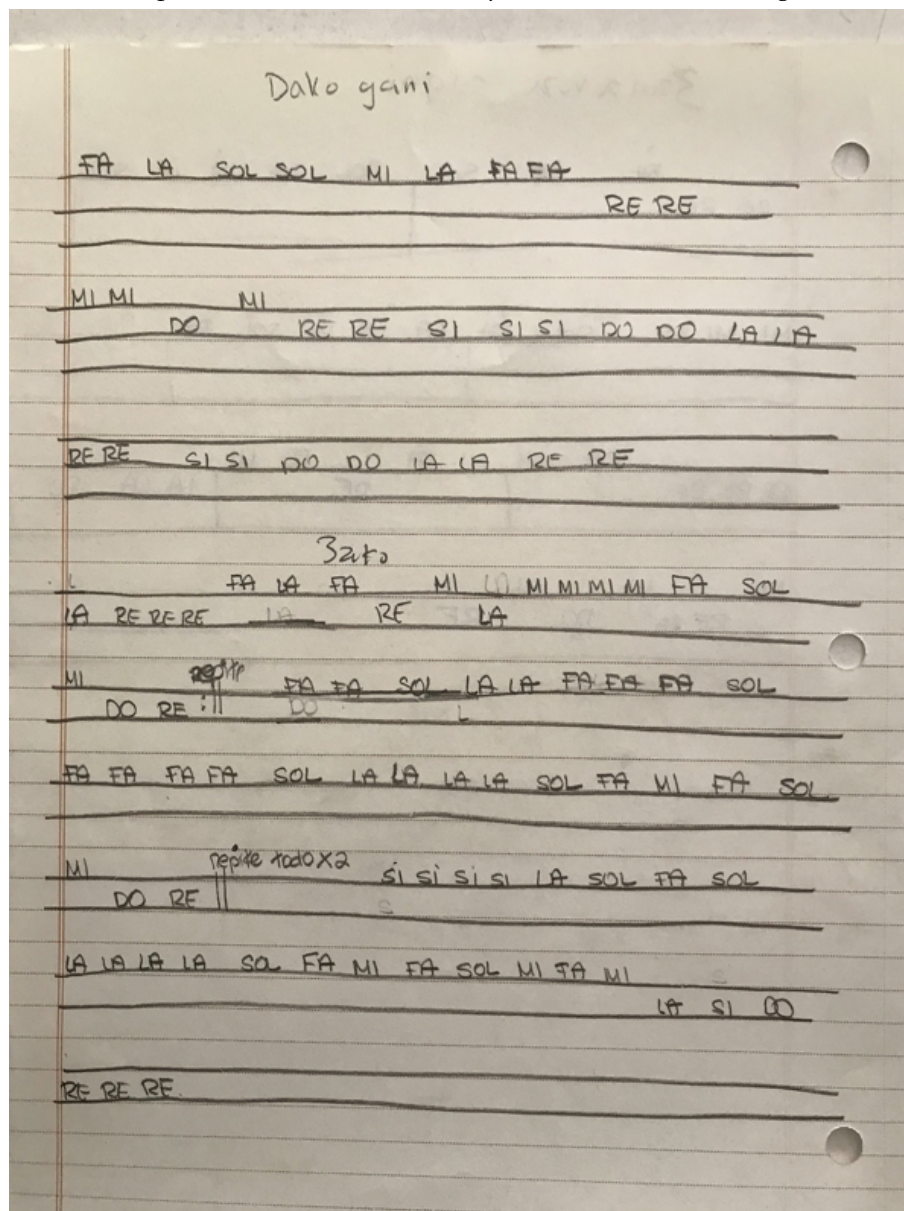 Dako gani
FA LA SOL SOL MI LA FA FA
RE RE
MI MI MI
DO RE RE SI SI SI DO DO LA LA
RE RE SI SI DO DO LA LA RE RE
Зато
L FA LA FA MI MI MI MI MI FA SOL
LA RE RE RE LA RE LA
repite
MI FA FA SOL LA LA FA FA FA SOL
DO RE :|| DO L
FA FA FA FA SOL LA LA LA LA SOL FA MI FA SOL
repite todo X2
MI Si Si Si SI LA SOL FA SOL
DO RE || S
LA LA LA LA SOL FA MI FA SOL MI FA MI S
LA SI DO
RE RE RE